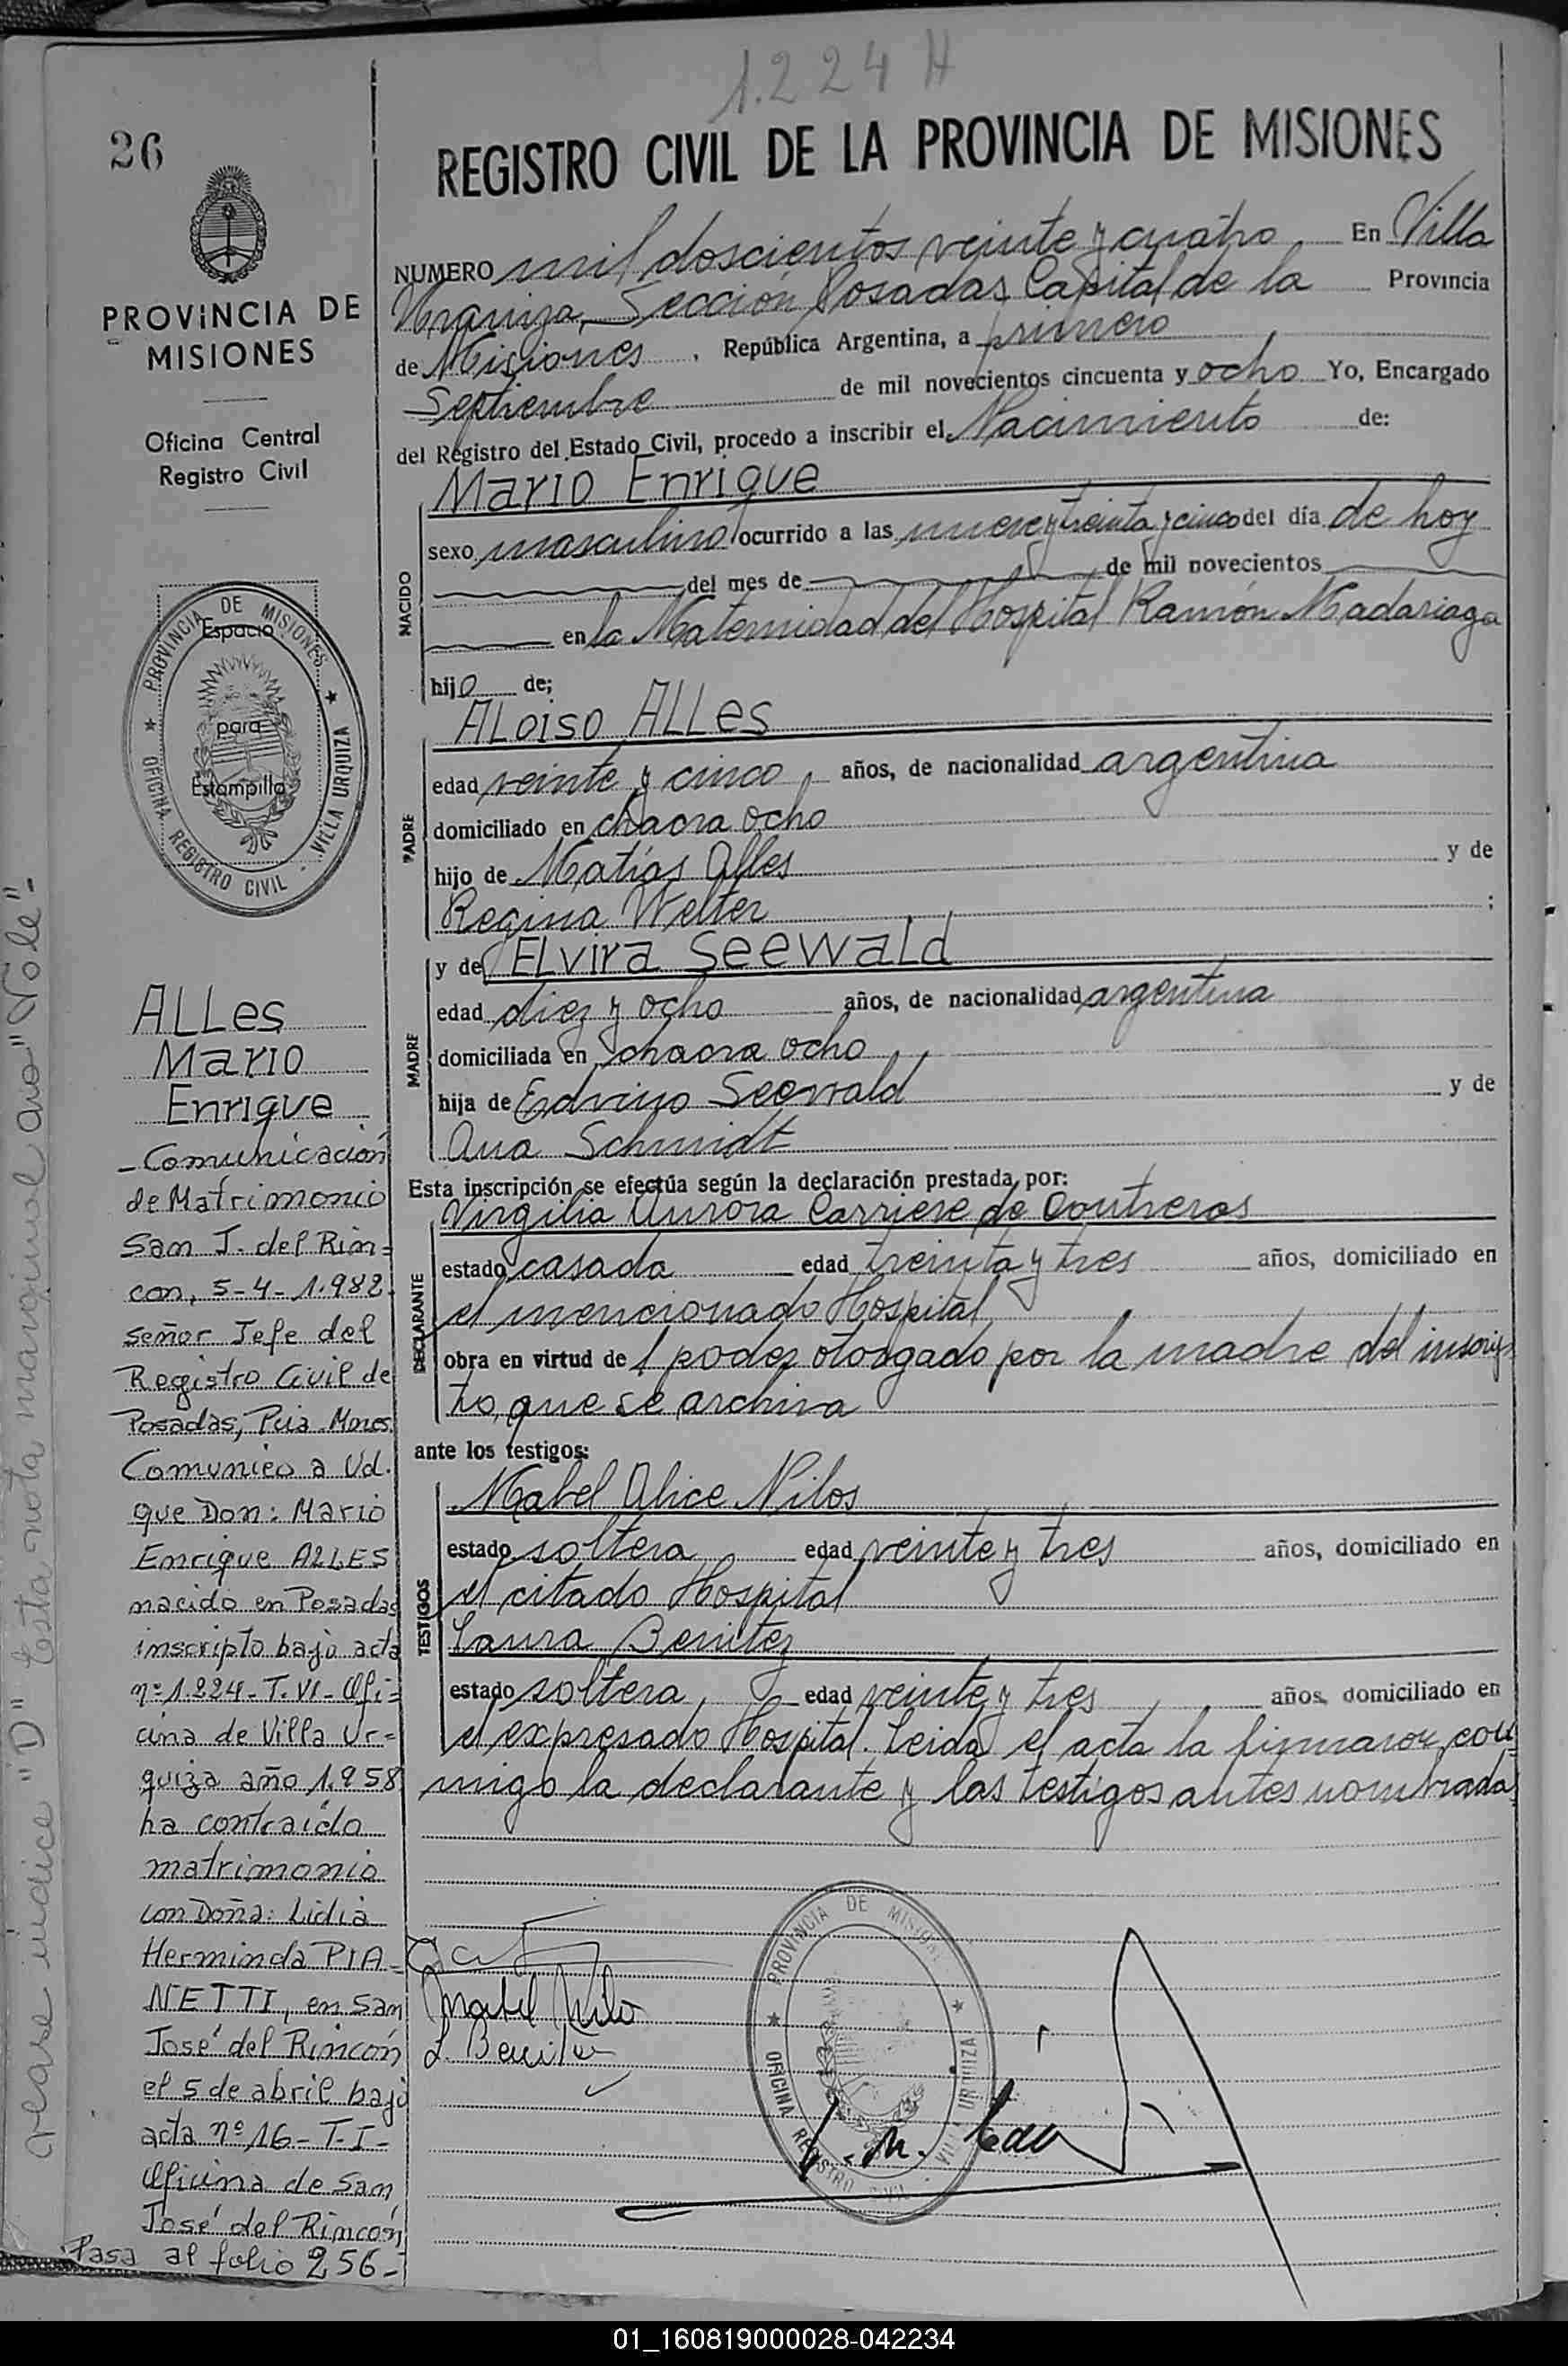 1.224 H
26
REGISTRO CIVIL DE LA PROVINCIA DE MISIONES
PROVINCIA DE
MISIONES
Oficina Central
Registro Civil
NUMERO mil doscientos veinte y cuatro En Villa
Urquiza, Sección Posadas, Capital de la Provincia
de Misiones, República Argentina, a primero
Septiembre de mil novecientos cincuenta y ocho Yo, Encargado
del Registro del Estado Civil, procedo a inscribir el Nacimiento de:
NACIDO
Mario Enrique
sexo masculino ocurrido a las nueve y treinta y cinco del día de hoy
del mes de de mil novecientos
en la Maternidad del Hospital Ramón Madariaga
hijo de;
PADRE
ALoiso ALLes
edad veinte y cinco, años, de nacionalidad argentina
domiciliado en chacra ocho
hijo de Matías Alles y de
Regina Welter ;
MADRE
y de ELvira Seewald
edad diez y ocho años, de nacionalidad argentina
domiciliada en chacra ocho,
hija de Edvino Seewald y de
Ana Schmidt
Esta inscripción se efectúa según la declaración prestada por:
DECLARANTE
Virgilia Aurora Carriere de Contreras
estado casada edad treinta y tres años, domiciliado en
el mencionado Hospital
obra en virtud de 1 poder otorgado por la madre del inscrip
to, que se archiva
ante los testigos:
TESTIGOS
Mabel Alice Nilos
estado soltera edad veinte y tres años, domiciliado en
el citado Hospital
Laura Benitez
estado soltera, edad veinte y tres, años, domiciliado en
el expresado Hospital. Leida el acta la firmaron con
migo la declarante y las testigos antes nombradas
Mabel Nilo
L. Benitez
PROVINCIA DE MISIONES
OFICINA REGISTRO CIVIL - VILLA URQUIZA
Espacio
para
Estampilla
ALLes
Mario
Enrique
- Comunicación
de Matrimonio
San J. del Rin=
con, 5-4-1.982.
Señor Jefe del
Registro Civil de
Posadas, Pcia. Mnes.
Comunico a Ud.
que Don: Mario
Enrique ALLES
nacido en Posadas
inscripto bajo acta
nº 1.224-T.VI-Ofi=
cina de Villa Ur=
quiza año 1.958
ha contraído
matrimonio
con Doña: Lidia
Herminda PIA=
NETTI, en San
José del Rincón
el 5 de abril bajo
acta nº 16-T-I-
Oficina de San
José del Rincón
Pasa al folio 256-
vease indice "D" Esta nota marginal ano "Vole"-
PROVINCIA DE MISIONES
OFICINA REGISTRO CIVIL - VILLA URQUIZA
01_160819000028-042234